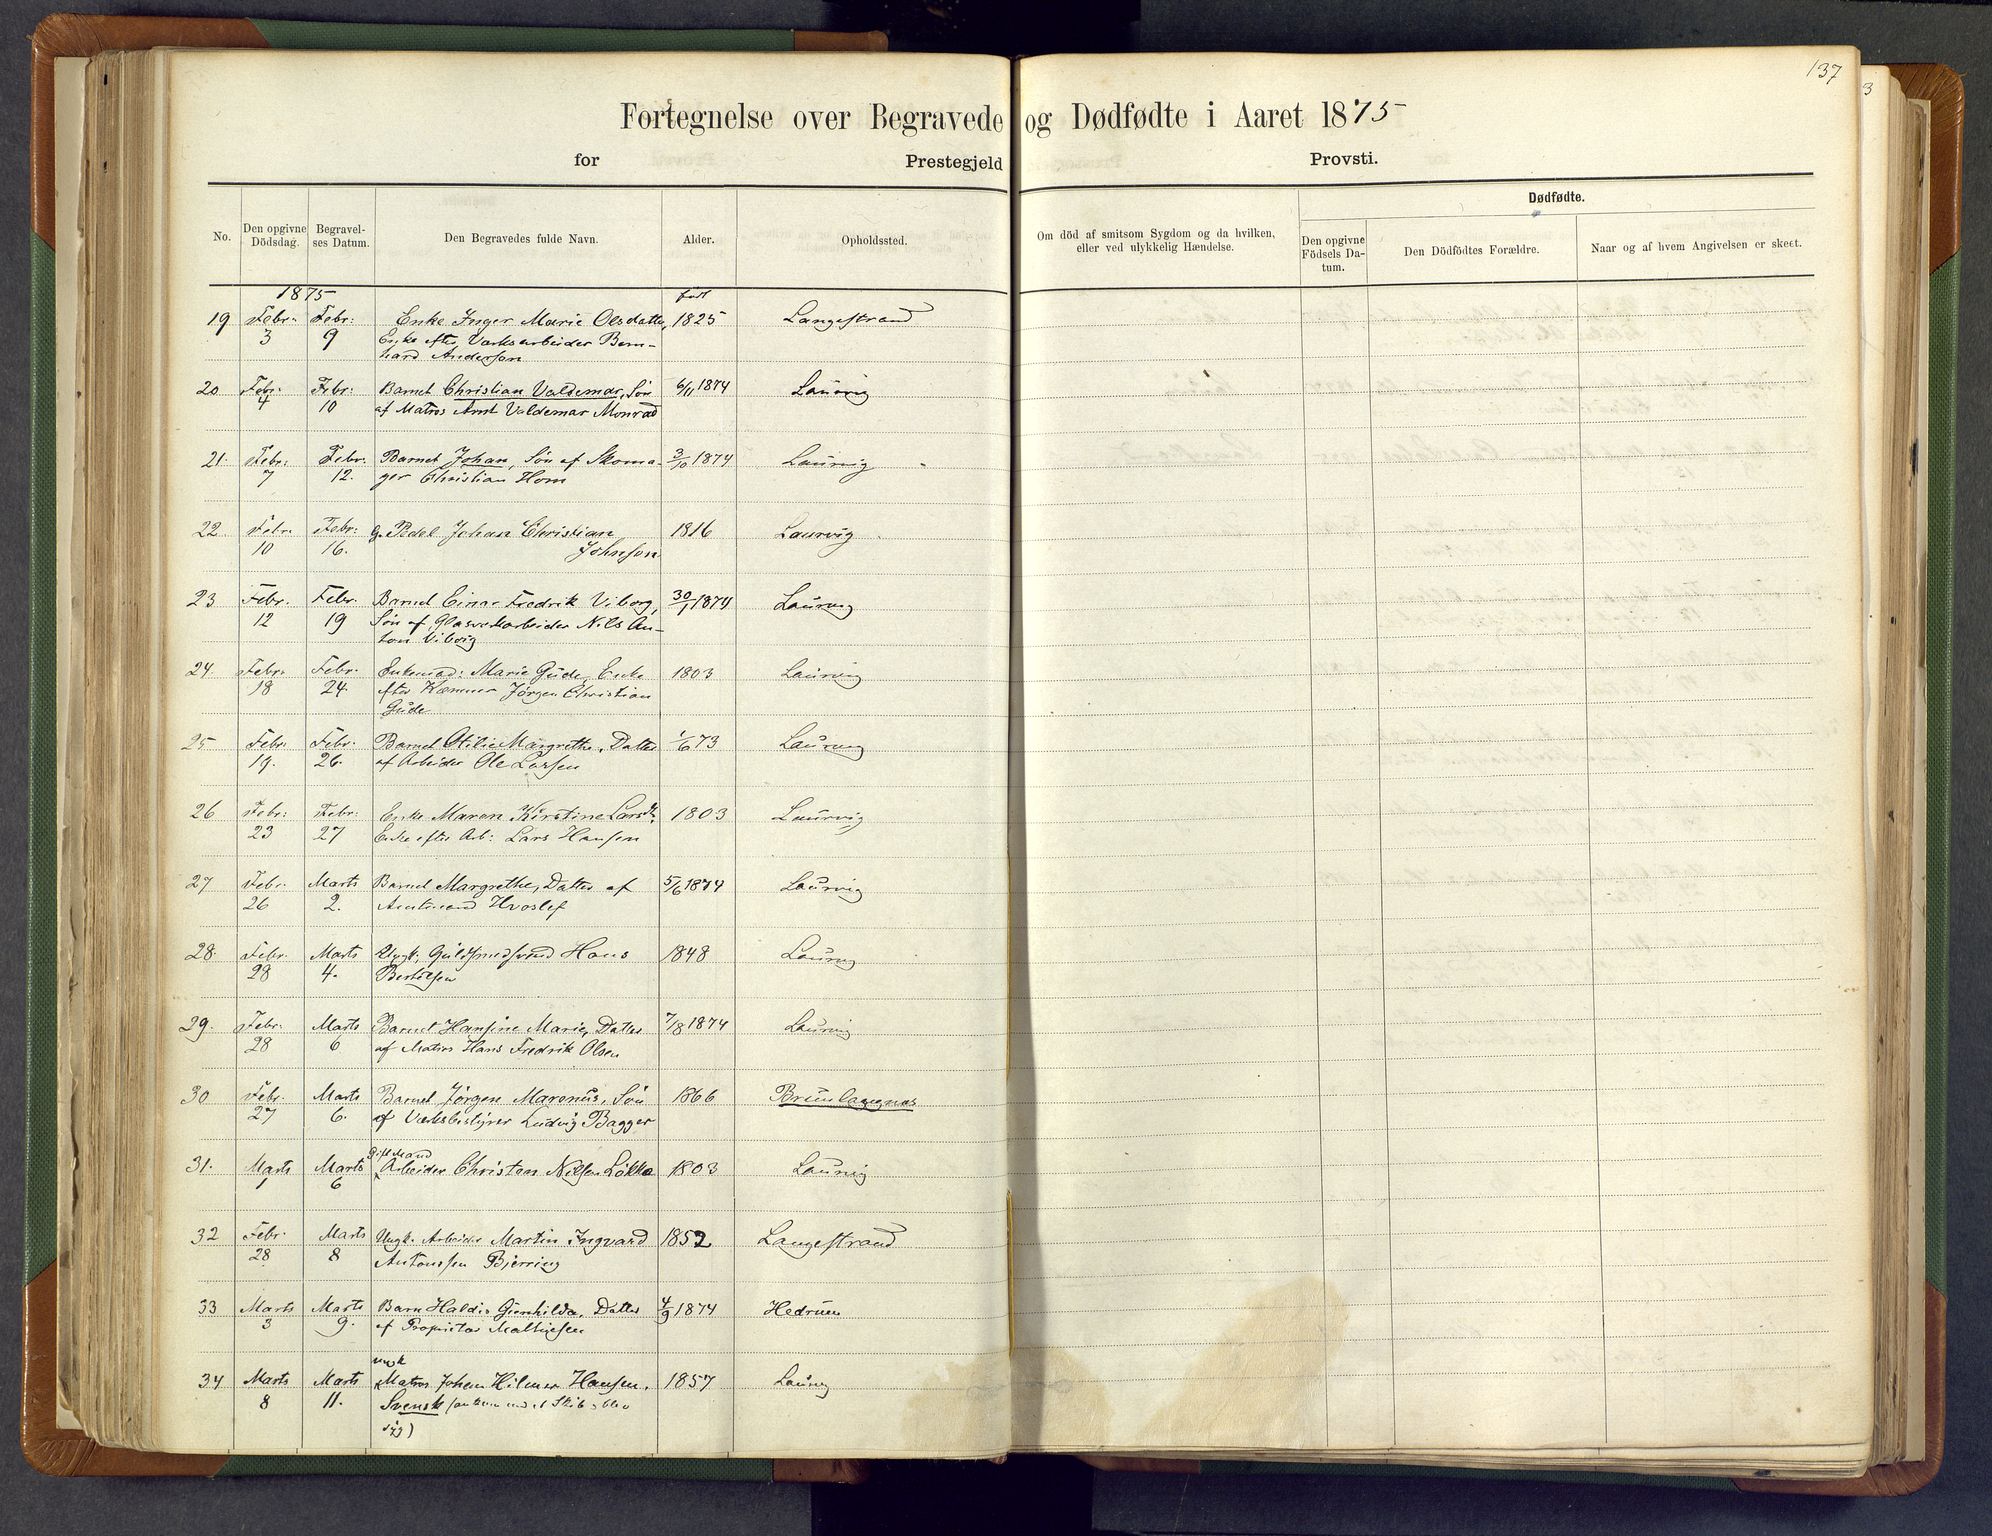 137
3
Fortegnelse over Begravede og Dødfødte i Aaret 1875
for Prestegjeld Provsti.
No. Den opgivne Dödsdag. Begravelses Datum. Den Begravedes fulde Navn. Alder. Opholdssted. Om död af smitsom Sygdom og da hvilken, eller ved ulykkelig Hændelse. Dødfødte.
Den opgivne Födsels Datum. Den Dödfödtes Forældre. Naar og af hvem Angivelsen er skeet.
1875 født
19 Febr: Febr: Enke Inger Marie Olsdatter, 1825 Langestrand
3 9 Enke efter Værksarbeider Bern-
hard Andersen
20 Febr: Febr: Barnet Christian Valdemar, Søn 6/11 1874 Laurvig
4 10 af Matros Arnt Valdemar Monrad
21. Febr: Febr: Barnet Johan, Søn af Skoma- 3/10 1874 Laurvig
7 12. ger Christian Horn
22 Febr. Febr: g. Pedel Johan Christian 1816 Laurvig
10 16. Johnson
23 Febr. Febr. Barnet Einar Fredrik Viborg, 30/1 1874 Laurvig
12 19 Søn af Glasværkarbeider Nils An-
ton Viborg
24. Febr. Febr. Enkemad: Marie Gude, Enke 1803 Laurvig
18 24. efter Kæmner Jørgen Christian
Gude
25 Febr. Febr. Barnet Otilie Margrethe, Datter 1/6 73 Laurvig
19. 26. af Arbeider Ole Larsen
26 Febr: Febr: Enke Maren Kirstine Larsdt. 1803 Laurvig
23 27 Enke efter Arb: Lars Hansen
27 Febr. Marts Barnet Margrethe, Datter af 5/6 1874 Laurvig
26 2. Amtmand Hvoslef
28. Febr. Marts Ungk. Guldsmedsvend Hans 1848 Laurvig
28 4. Bertelsen
29. Febr. Marts Barnet Hansine Marie, Datter 7/8 1874 Laurvig
28 6 af Matros Hans Fredrik Olsen
30 Febr. Marts Barnet Jørgen Marenus, Søn 1866 Brunlaugnæs
27 6. af Værksbestyrer Ludvig Bagger
gift Mand
31. Marts Marts Arbeider Christen Nilsen Løkke 1803 Laurvig
1 6
32 Febr. Marts Ungk. Arbeider Martin Ingvard 1852 Langestrand
28 8 Antonsen Bjerring
33 Marts Marts Barn Haldis Gunhilda, Datter 4/9 1874 Hedrum
3 9. af Proprietær Mathiesen
ungk
34 Marts Marts Matros Johan Hilmer Hansen. 1857 Laurvig
8 11. Svensk
syg)